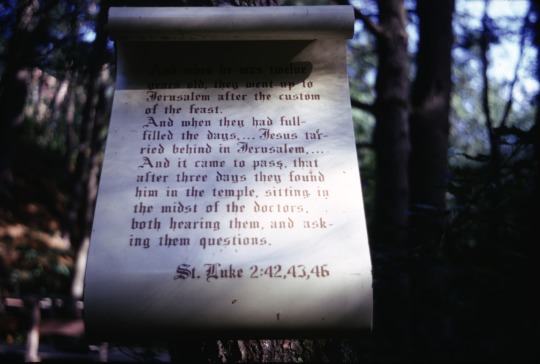 And when he was twelve
years old, they went up to
Jerusalem after the custom
of the feast.
And when they had full-
filled the days,... Jesus tar-
ried behind in Jerusalem,...
And it came to pass, that
after three days they found
him in the temple, sitting in
the midst of the doctors,
both hearing them, and ask-
ing them questions.
St. Luke 2:42,43,46